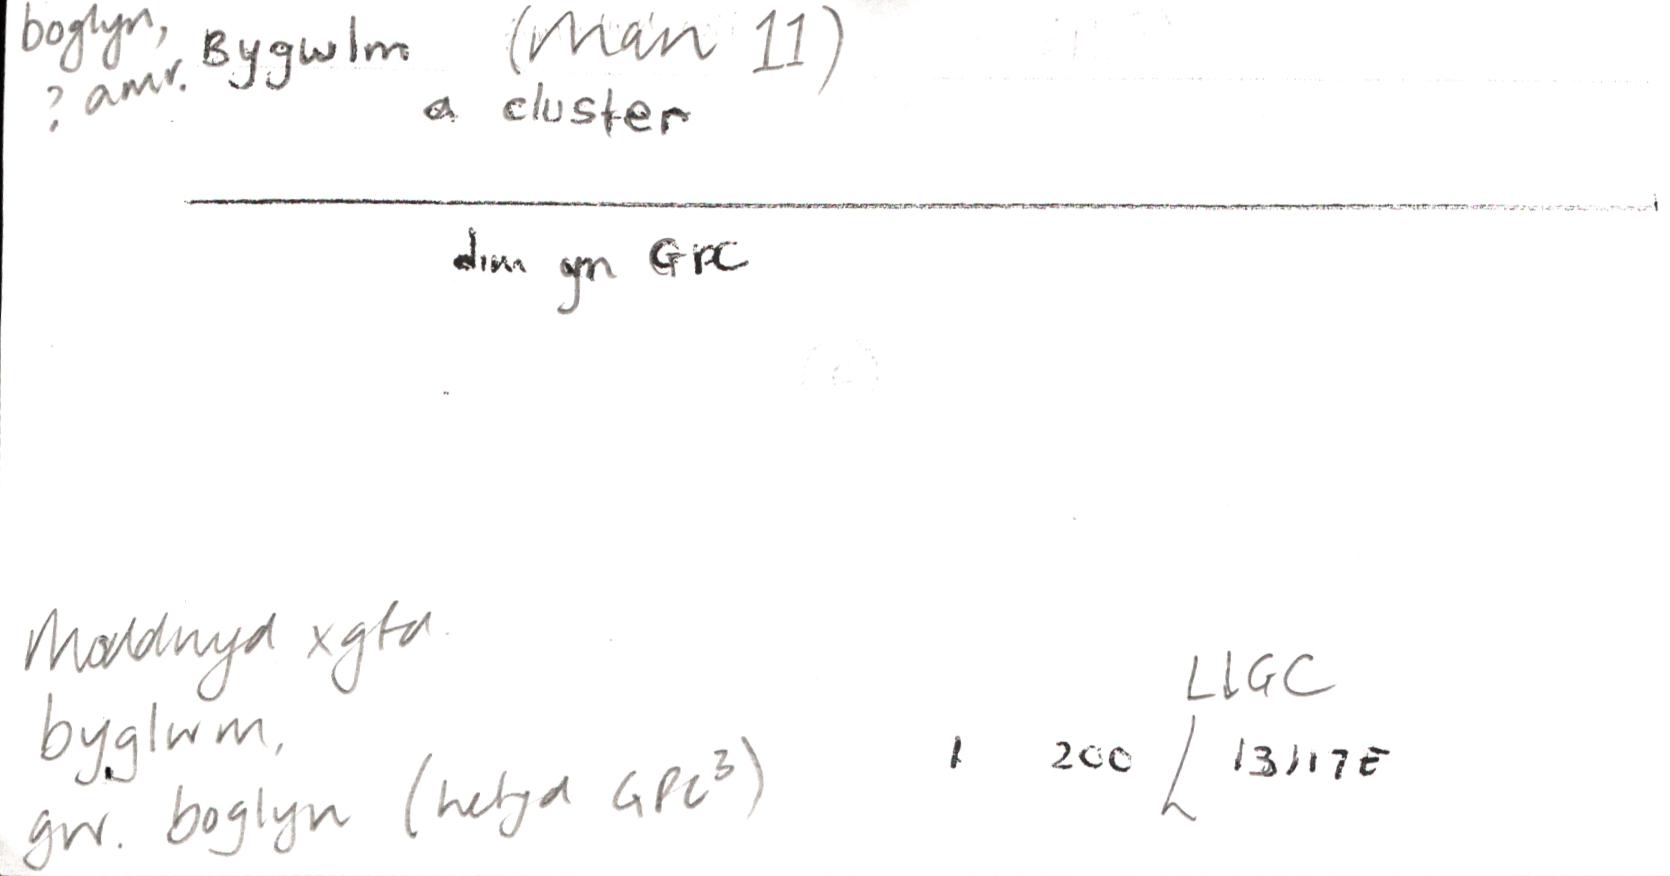 boglyn,
? amr.
Bygwlm (Man 11)
a cluster
dim yn GPC
Moddnyd xgfd.
byglwm,
gw. boglyn (hefyd GPC³)
LlGC
1 200 / 13117E